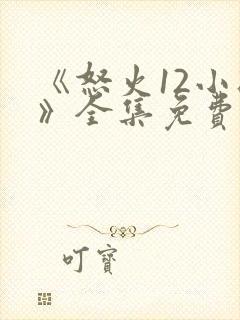 《怒火12小
》全集免费
叮寶